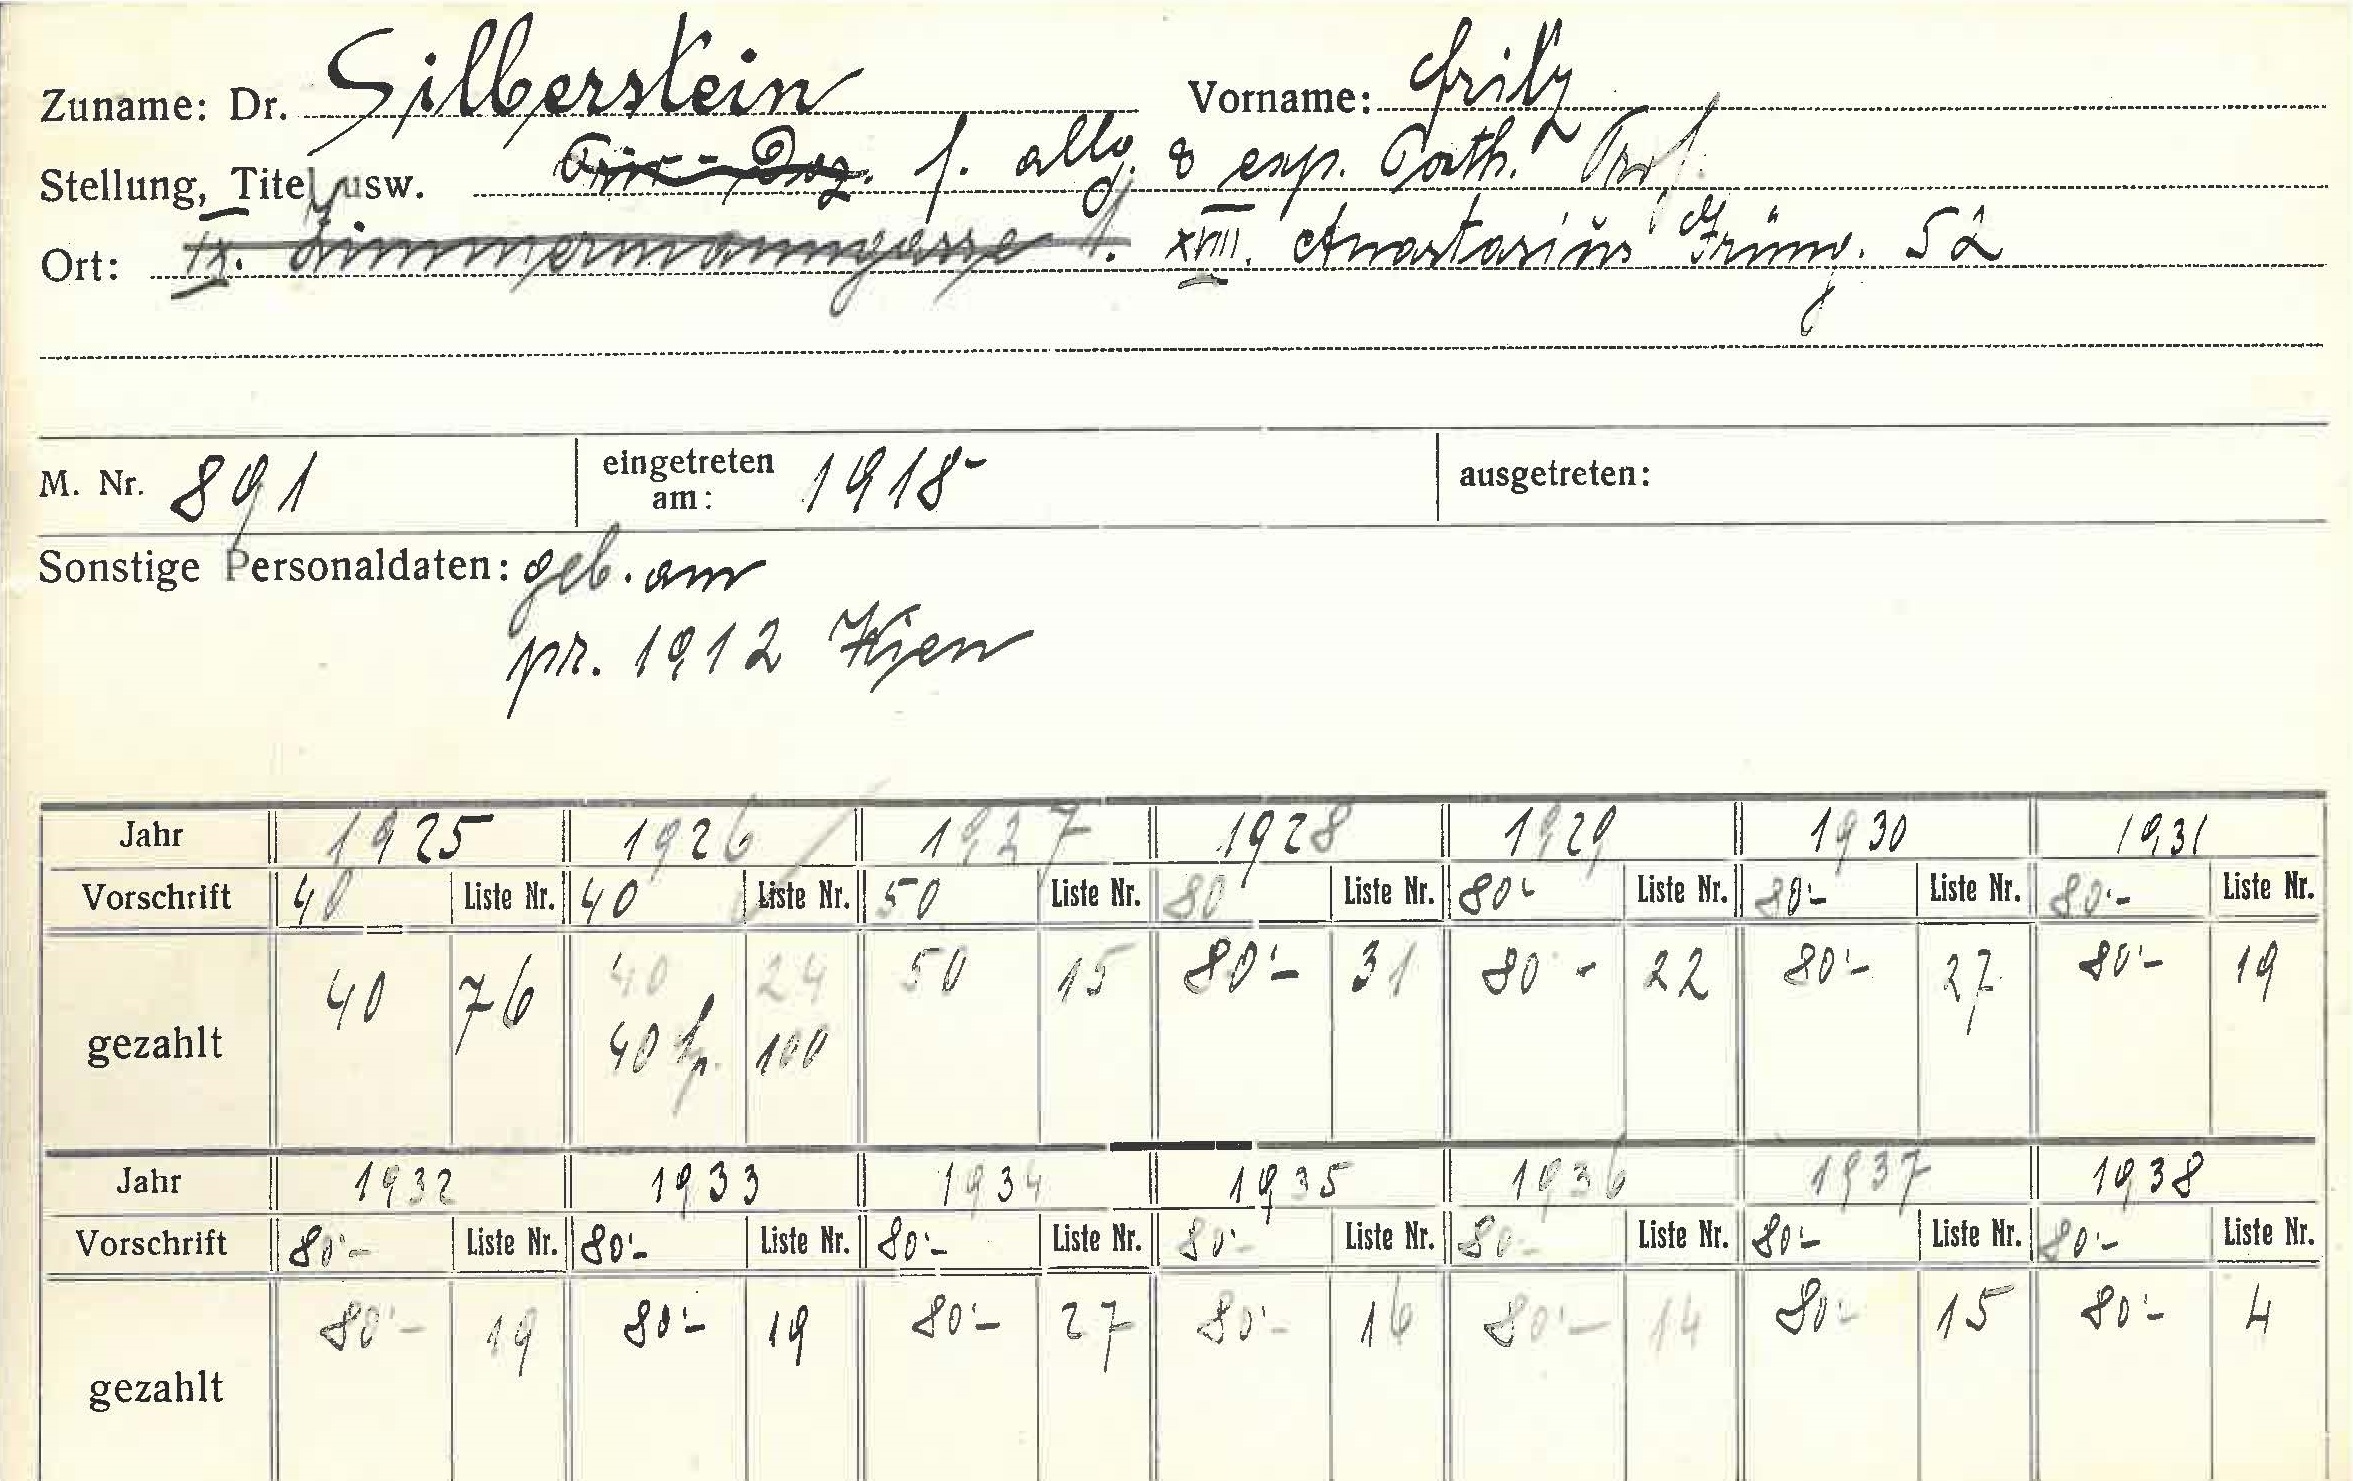 Zuname: Dr. Silberstein Vorname: Fritz
Stellung, Titel usw. Priv.-Doz. f. allg. & exp. Path. Prof.
Ort: IX. Zimmermanngasse 1. XVIII. Anastasius Grüng. 52
M. Nr. 891 eingetreten am: 1918 ausgetreten:
Sonstige Personaldaten: geb. am
pr. 1912 Wien
Jahr 1925 1926 1927 1928 1929 1930 1931
Vorschrift 40 Liste Nr. 40 Liste Nr. 50 Liste Nr. 80 Liste Nr. 80'- Liste Nr. 80'- Liste Nr. 80'- Liste Nr.
40 76 40 24 50 15 80'- 31 80 - 22 80'- 27 80'- 19
gezahlt 40 100
Jahr 1932 1933 1934 1935 1936 1937 1938
Vorschrift 80'- Liste Nr. 80'- Liste Nr. 80'- Liste Nr. 80'- Liste Nr. 80- Liste Nr. 80'- Liste Nr. 80'- Liste Nr.
80'- 19 80'- 19 80'- 27 80'- 16 80'- 14 80'- 15 80'- 4
gezahlt